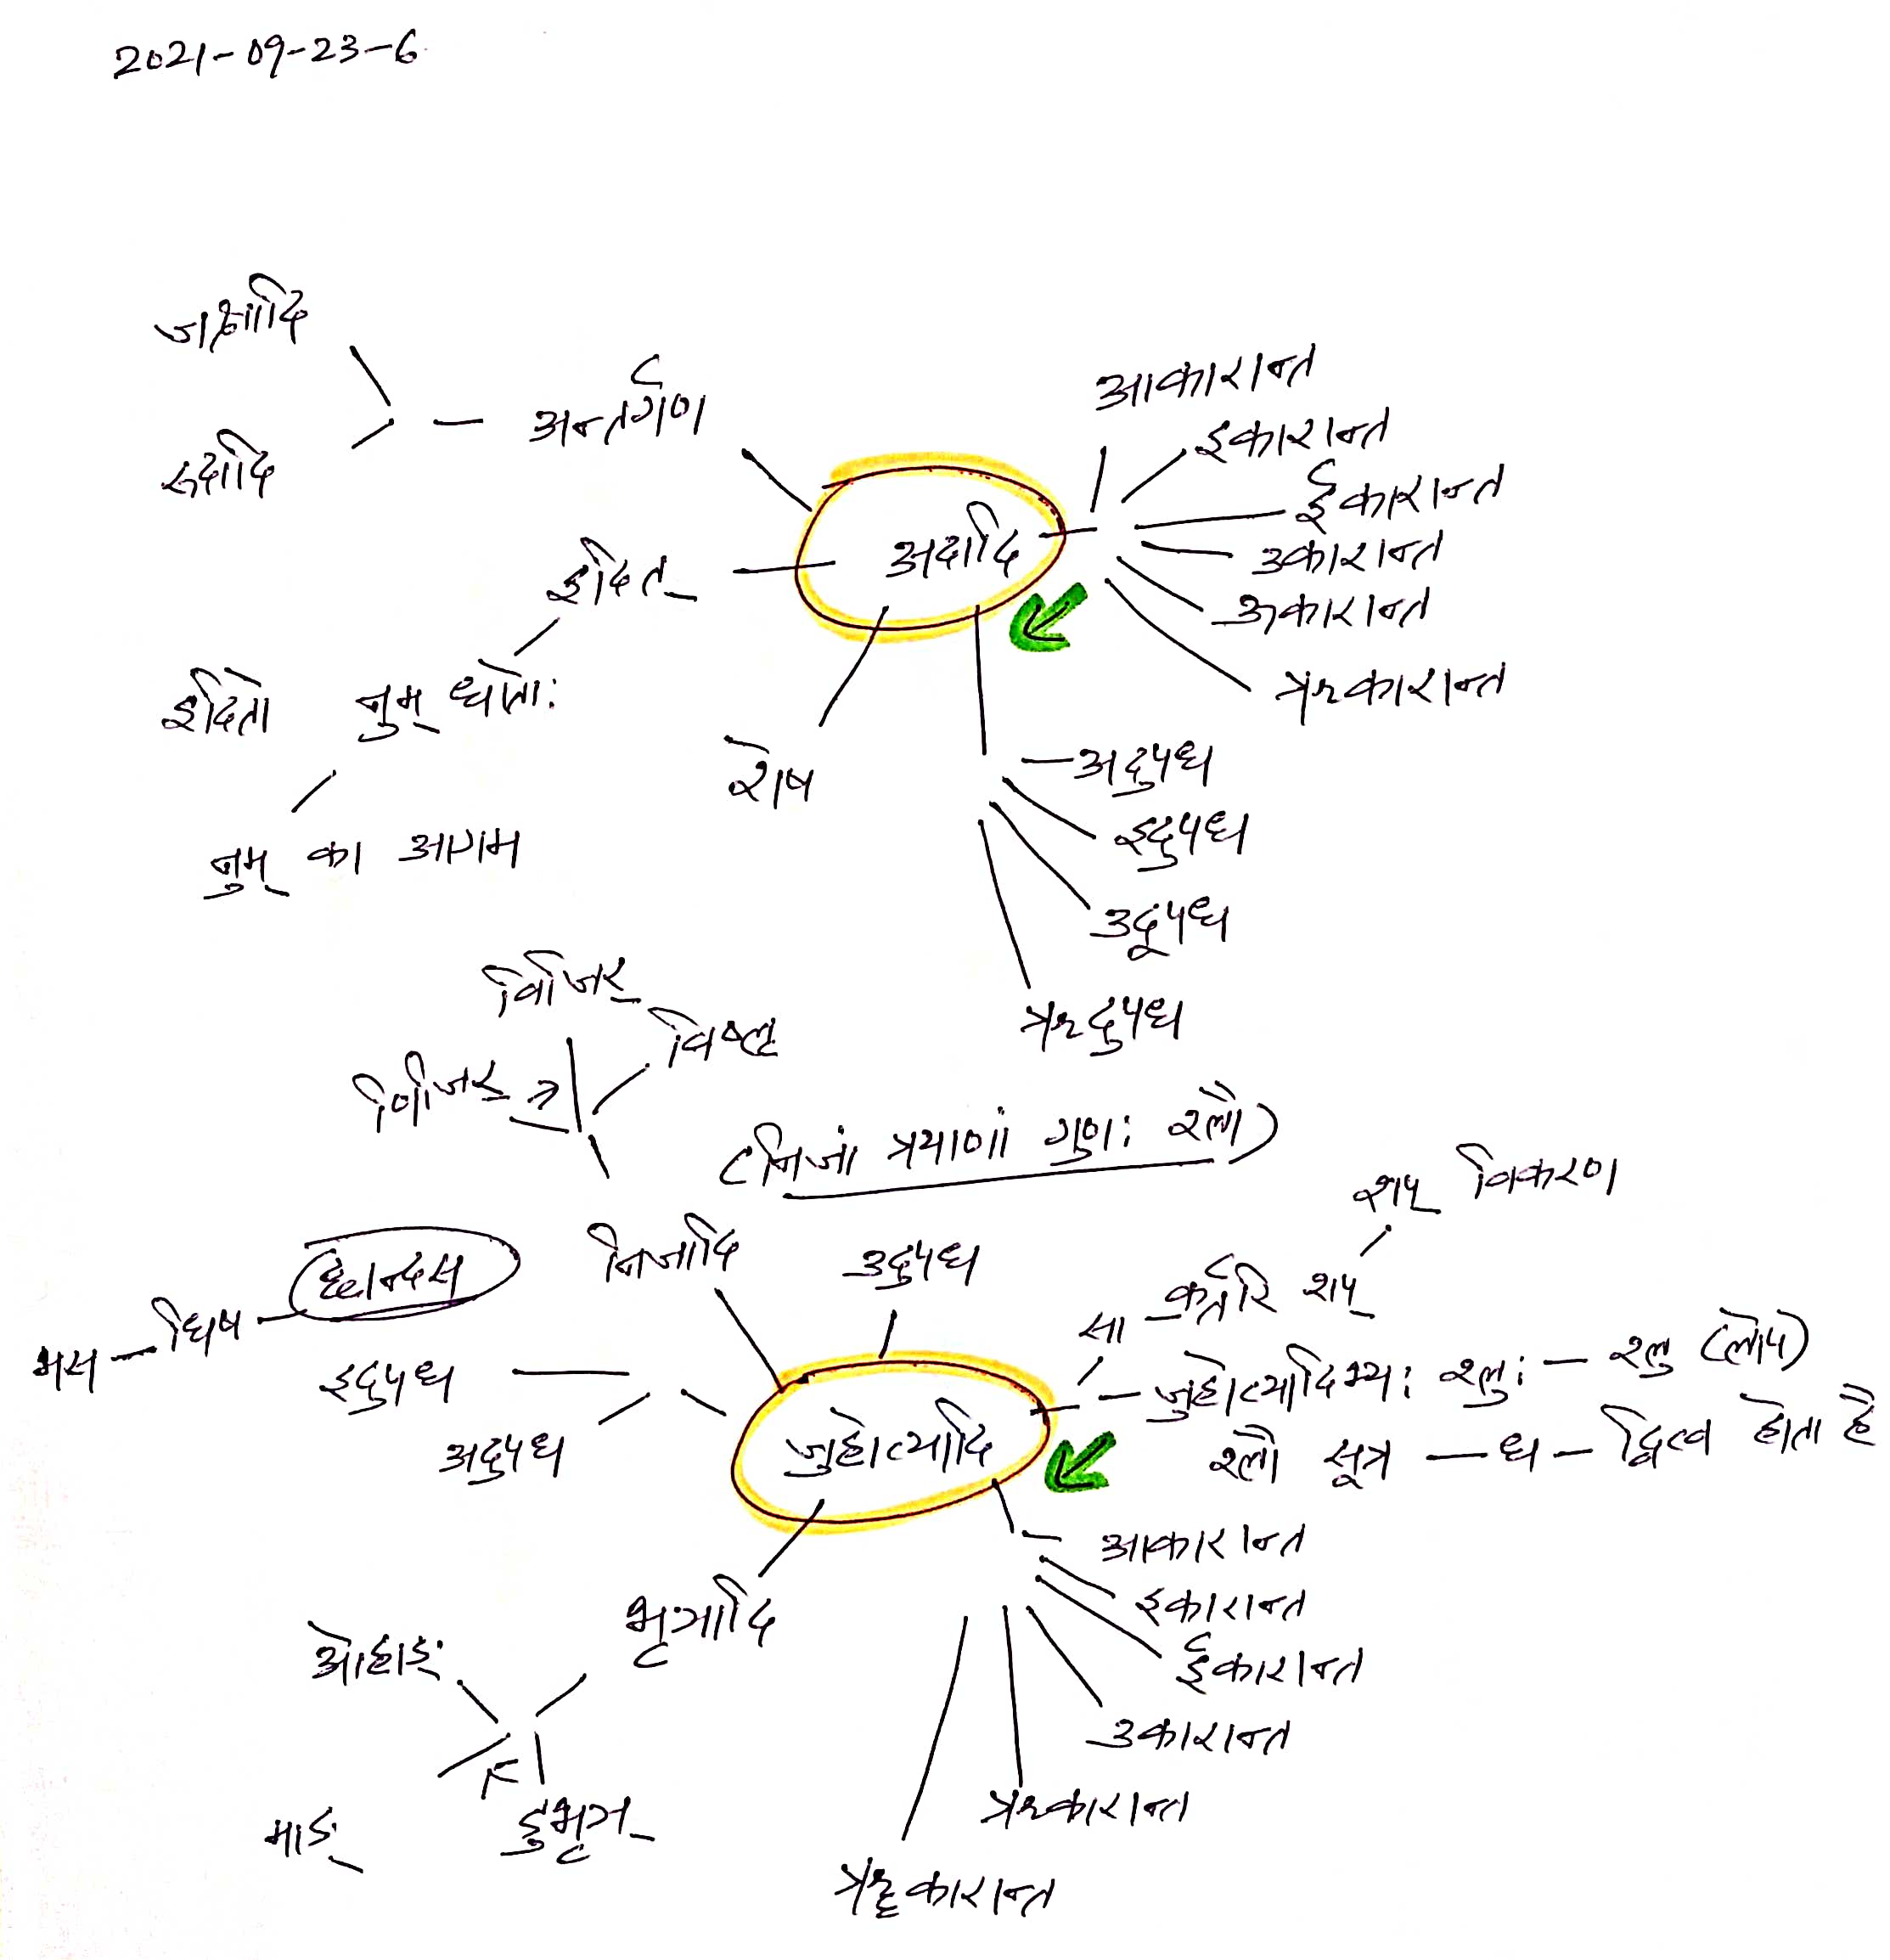 2021-09-23-6
जक्षादि
रुदादि
अन्तर्गण
इदित्
इदितो नुम् धातोः
नुम् का आगम
शेष
अदादि
आकारान्त
इकारान्त
ईकारान्त
उकारान्त
ऋकारान्त
अदुपध
इदुपध
उदुपध
ऋदुपध
विजिर्
विष्लृ
णिजिर्
(निजां त्रयाणां गुणः श्लौ)
निजादि
उदुपध
छान्दस
धिष
भस
इदुपध
अदुपध
जुहोत्यादि
शप् विकरण
सा – कर्तरि शप्
जुहोत्यादिभ्यः श्लुः – श्लु (लोप)
श्लौ सूत्र – ध – द्वित्व होता है
आकारान्त
इकारान्त
ईकारान्त
उकारान्त
ऋकारान्त
ॠकारान्त
भृञादि
ओहाङ्
माङ्
डुभृञ्